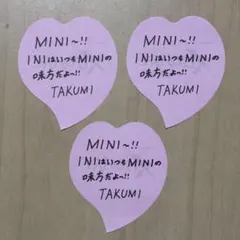 MINI～!!
INIはいつもMINIの
味方だよ～!!
TAKUMI
MINI～!!
INIはいつもMINIの
味方だよ～!!
TAKUMI
MINI～!!
INIはいつもMINIの
味方だよ～!!
TAKUMI